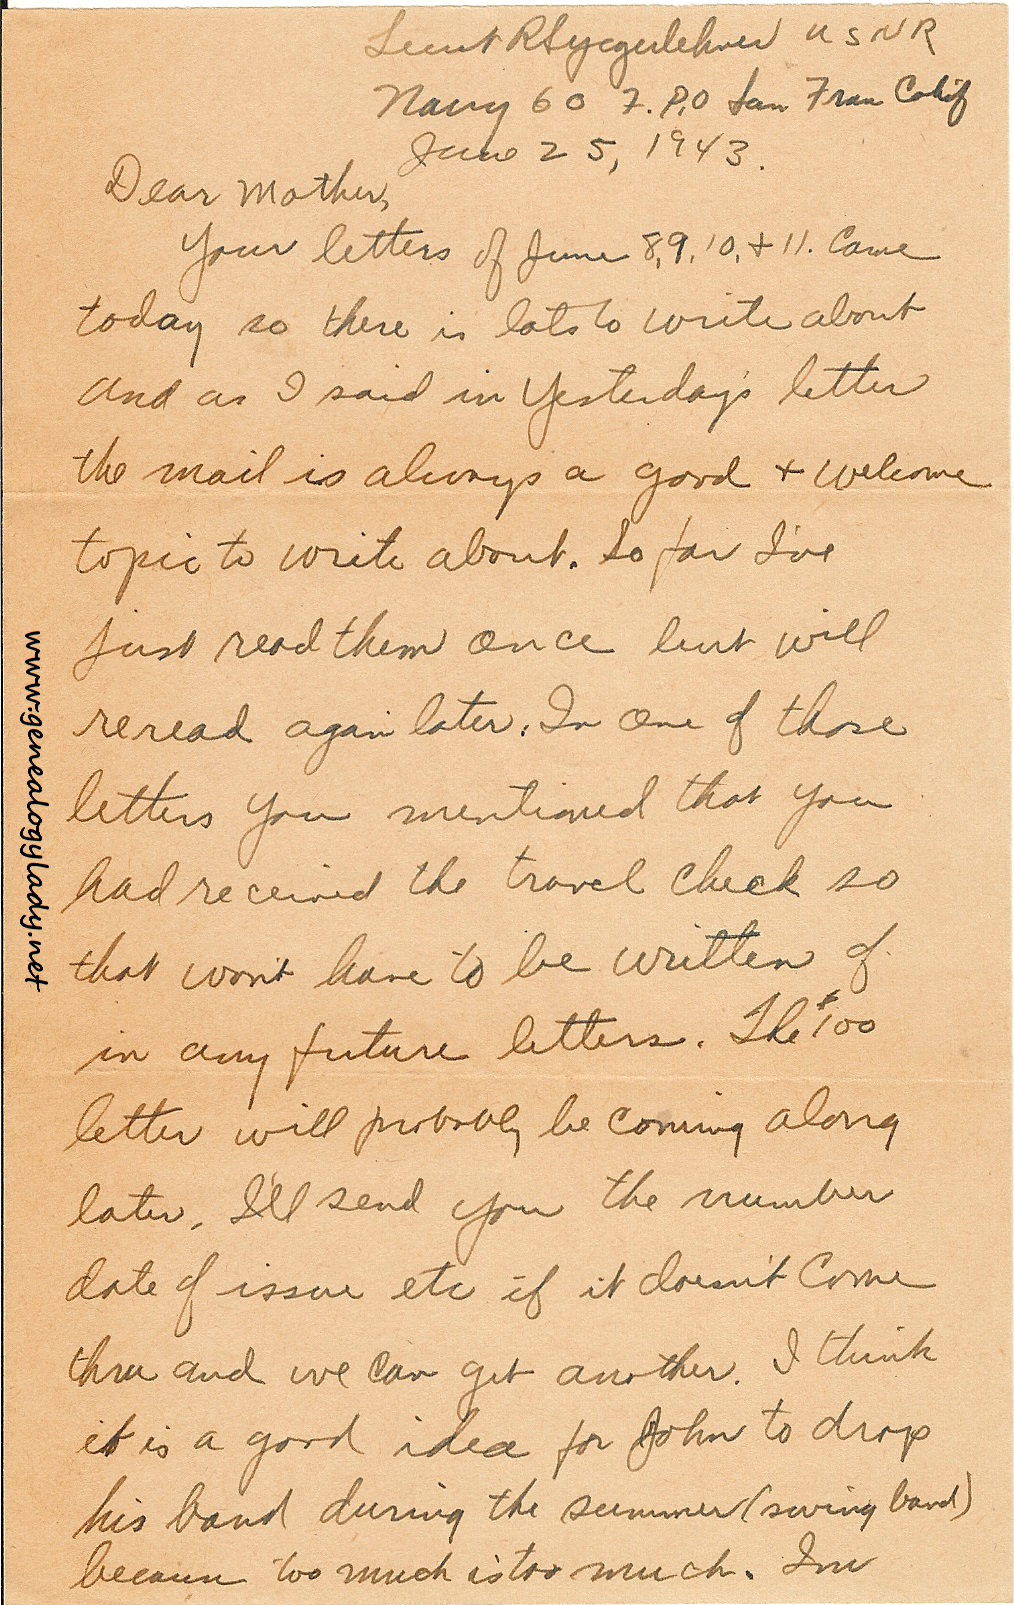 Lieut R S Yegerlehner U S N R
Navy 60 F.P.O San Fran Calif
June 25, 1943.
Dear Mother,
Your letters of June 8, 9, 10, + 11. Came
today so there is lots to write about
and as I said in Yesterday's letter
the mail is always a good + welcome
topic to write about. So far I've
just read them once but will
reread again later. In one of those
letters you mentioned that you
had received the travel check so
that won't have to be written of
in any future letters. The $100
letter will probably be coming along
later. I'll send you the number
date of issue etc if it doesn't Come
thru and we can get another. I think
it is a good idea for John to drop
his band during the summer (swing band)
because too much is too much. I'm
www.genealogylady.net